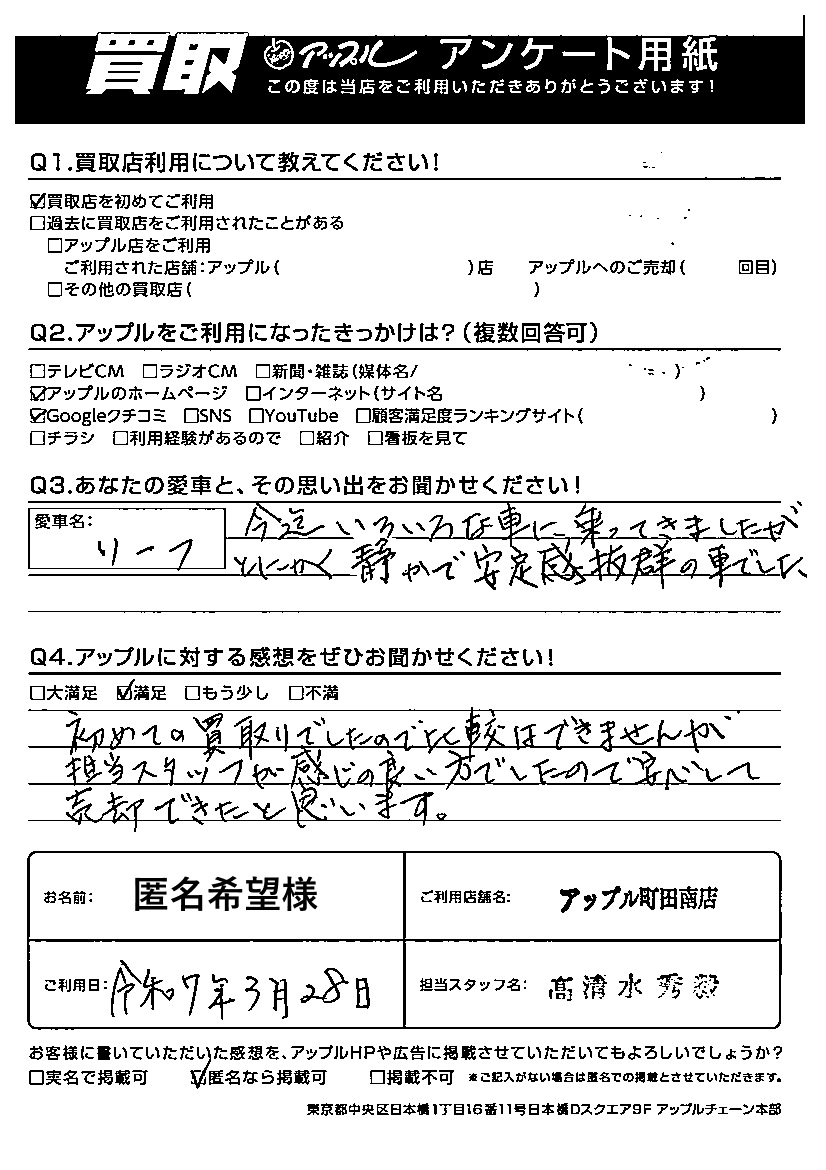 買取 アップル アンケート用紙
この度は当店をご利用いただきありがとうございます!
Q1.買取店利用について教えてください!
☑買取店を初めてご利用
□過去に買取店をご利用されたことがある
□アップル店をご利用
ご利用された店舗:アップル( )店 アップルへのご売却( 回目)
□その他の買取店( )
Q2.アップルをご利用になったきっかけは?(複数回答可)
□テレビCM □ラジオCM □新聞・雑誌(媒体名/ )
☑アップルのホームページ □インターネット(サイト名 )
☑Googleクチコミ □SNS □YouTube □顧客満足度ランキングサイト( )
□チラシ □利用経験があるので □紹介 □看板を見て
Q3.あなたの愛車と、その思い出をお聞かせください!
愛車名:
リーフ
今迄いろいろな車に、乗ってきましたが
とにかく静かで安定感抜群の車でした、
Q4.アップルに対する感想をぜひお聞かせください!
□大満足 ☑満足 □もう少し □不満
初めての買取りでしたので比較はできませんが
担当スタッフが感じの良い方でしたので安心して
売却できたと思います。
お名前: 匿名希望様 ご利用店舗名: アップル町田南店
ご利用日: 令和7年3月28日 担当スタッフ名: 高清水 秀毅
お客様に書いていただいた感想を、アップルHPや広告に掲載させていただいてもよろしいでしょうか?
□実名で掲載可 ☑匿名なら掲載可 □掲載不可 ※ご記入がない場合は匿名での掲載とさせていただきます。
東京都中央区日本橋1丁目16番11号日本橋Dスクエア9F アップルチェーン本部